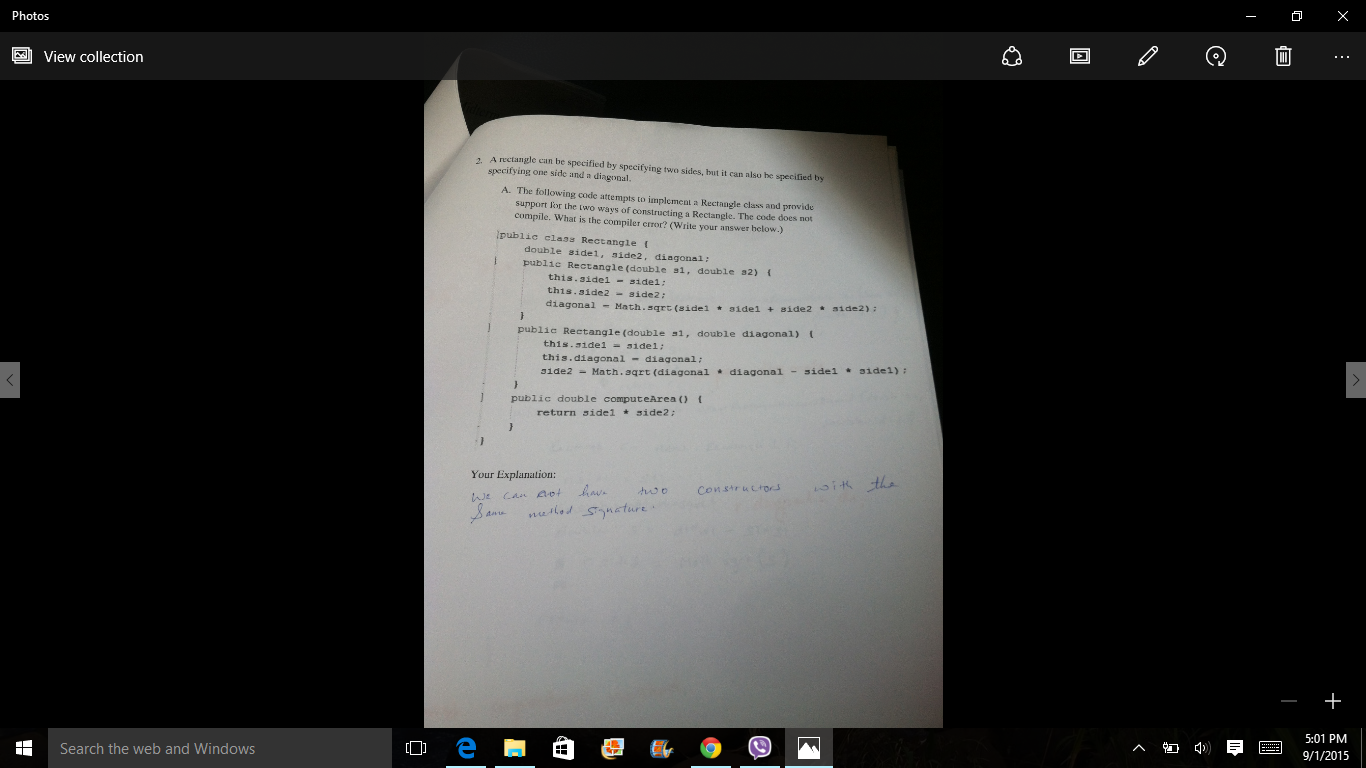 Photos
View collection
2. A rectangle can be specified by specifying two sides, but it can also be specified by
specifying one side and a diagonal.
A. The following code attempts to implement a Rectangle class and provide
support for the two ways of constructing a Rectangle. The code does not
compile. What is the compiler error? (Write your answer below.)
public class Rectangle {
double side1, side2, diagonal;
public Rectangle(double s1, double s2) {
this.side1 = side1;
this.side2 = side2;
diagonal = Math.sqrt(side1 * side1 + side2 * side2);
}
public Rectangle(double s1, double diagonal) {
this.side1 = side1;
this.diagonal = diagonal;
side2 = Math.sqrt(diagonal * diagonal - side1 * side1);
}
public double computeArea() {
return side1 * side2;
}
}
Your Explanation:
We can not have two constructors with the
Same method signature.
Search the web and Windows
5:01 PM
9/1/2015